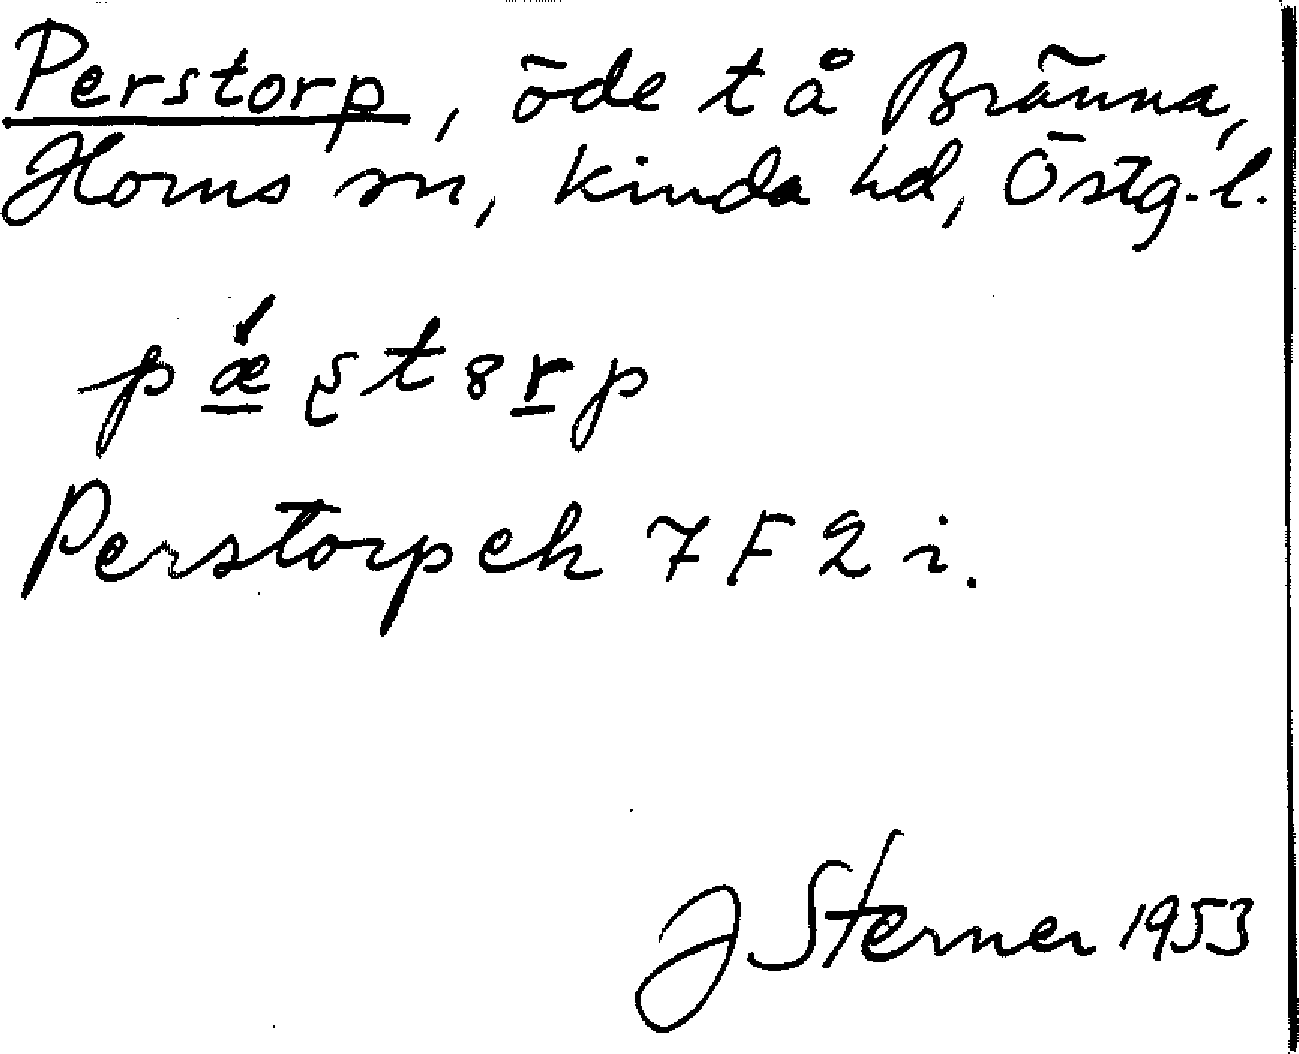 Perstorp, öde t å Bränna,
Horns sn, Kinda hd, Östg. l.
pǽʂt8rp
Perstorp ek 7 F 2 i.
J Sterner 1953